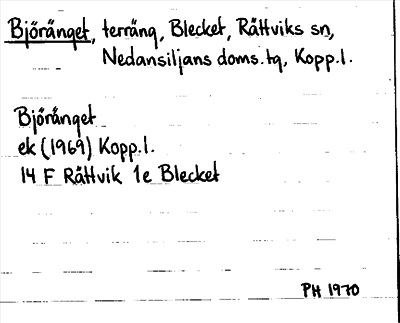 Björänget, terräng, Blecket, Rättviks sn,
Nedansiljans doms.tg, Kopp.l.
Björänget
ek (1969) Kopp.l.
14 F Rättvik 1e Blecket
PH 1970